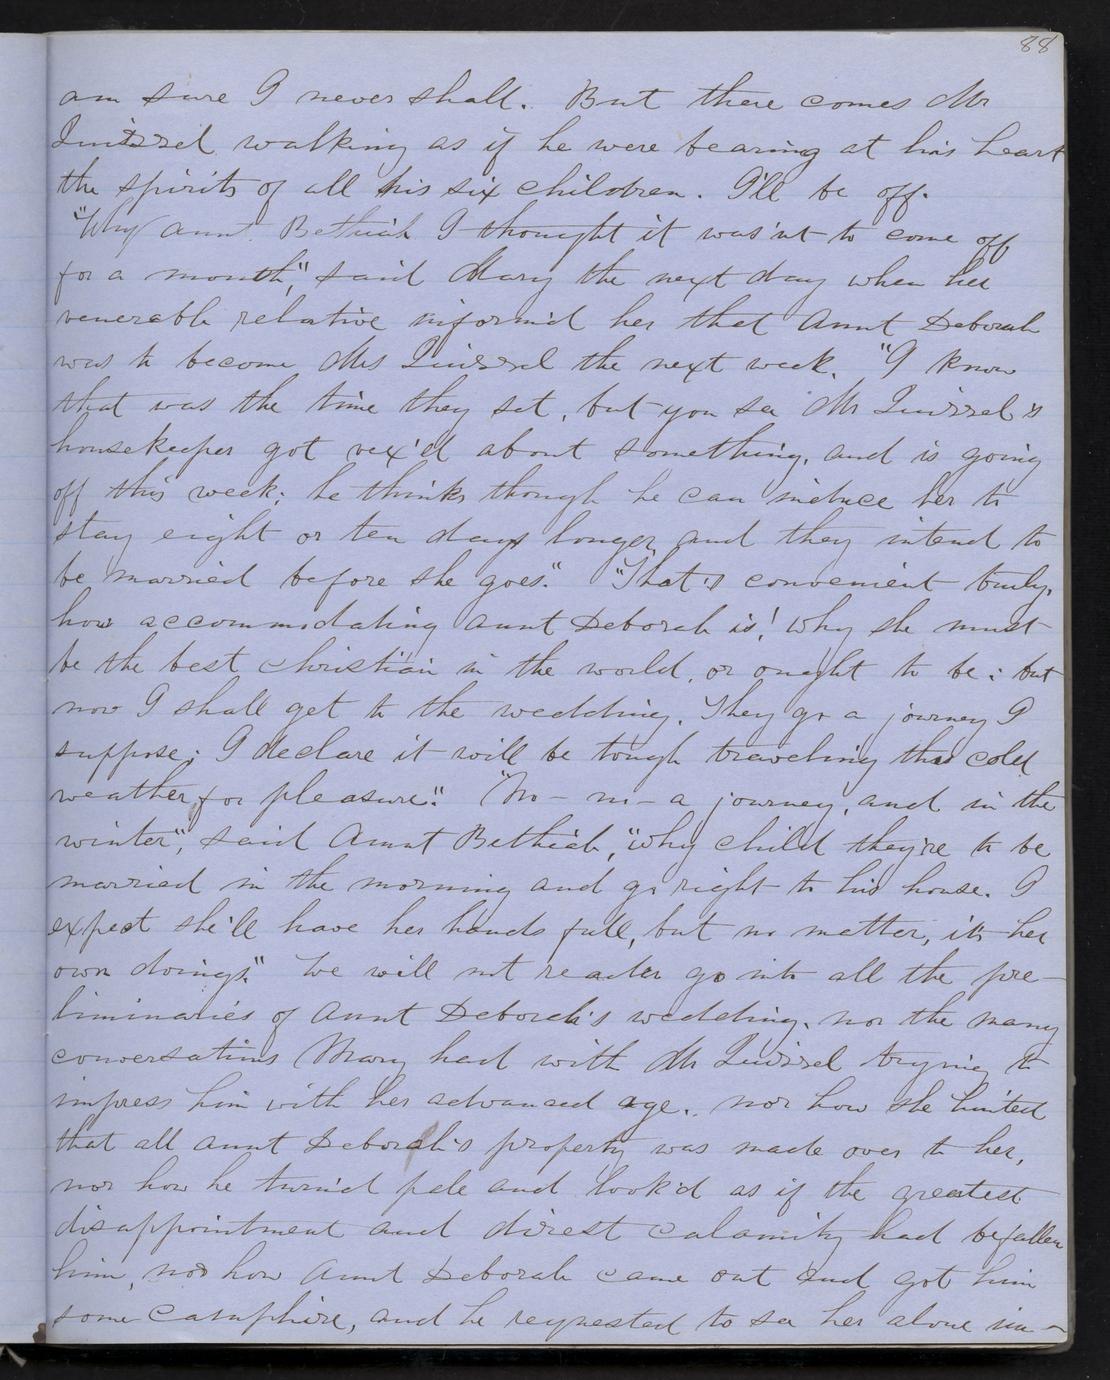 88
am sure I never shall. But there comes Mr
Quirrel walking as if he were bearing at his heart
the spirits of all his six children. I'll be off.
"Why aunt Bethiah I thought it was'nt to come off
for a month", said Mary the next day when her
venerable relative inform'd her that Aunt Deborah
was to become Mrs Quirrel the next week. "I know
that was the time they set, but you see Mr Quirrel's
housekeeper got vex'd about something, and is going
off this week; he thinks though he can induce her to
stay eight or ten days longer, and they intend to
be married before she goes". "That's convenient truly,
how accommodating aunt Deborah is! why she must
be the best christian in the world, or ought to be; but
now I shall get to the wedding. They go a journey I
suppose; I declare it will be tough traveling this cold
weather for pleasure". "No - no - a journey, and in the
winter", said Aunt Bethiah, "why child they're to be
married in the morning and go right to his house. I
expect she'll have her hands full, but no matter, it's her
own doings". We will not reader go into all the pre-
liminaries of Aunt Deborah's wedding, nor the many
conversations Mary had with Mr Quirrel trying to
impress him with her advanced age, nor how she hinted
that all aunt Deborah's property was made over to her,
nor how he turn'd pale and look'd as if the greatest
disappointment and direst calamity had befallen
him, nor how Aunt Deborah came out and got him
some camphire, and he requested to see her alone im-